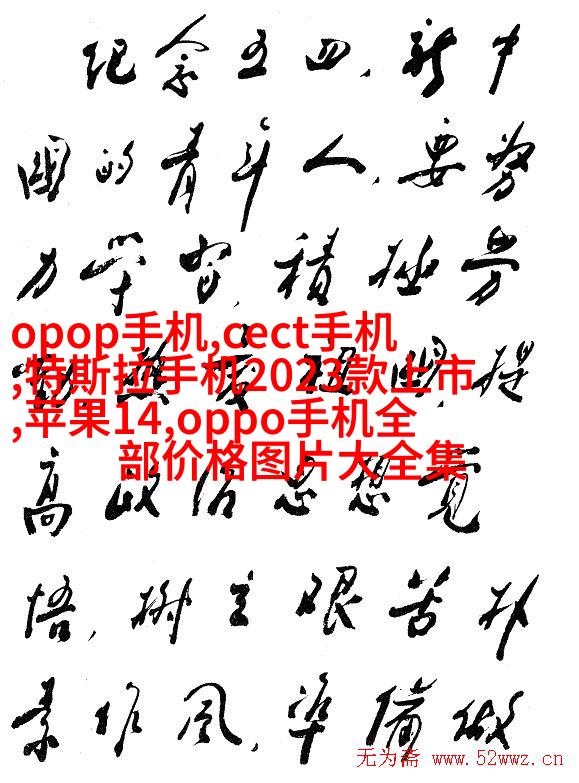 纪念五四，新中
國的青年人，要努
力学習，積極劳
opop手机,cect手机
;特斯拉手机2023款上市
動热愛祖國，提
,苹果14,oppo手机全
部价格图片大全集
高政治思想覺
悟，树立艰苦朴
素作风，準備做
无为斋 www.52wwz.cn